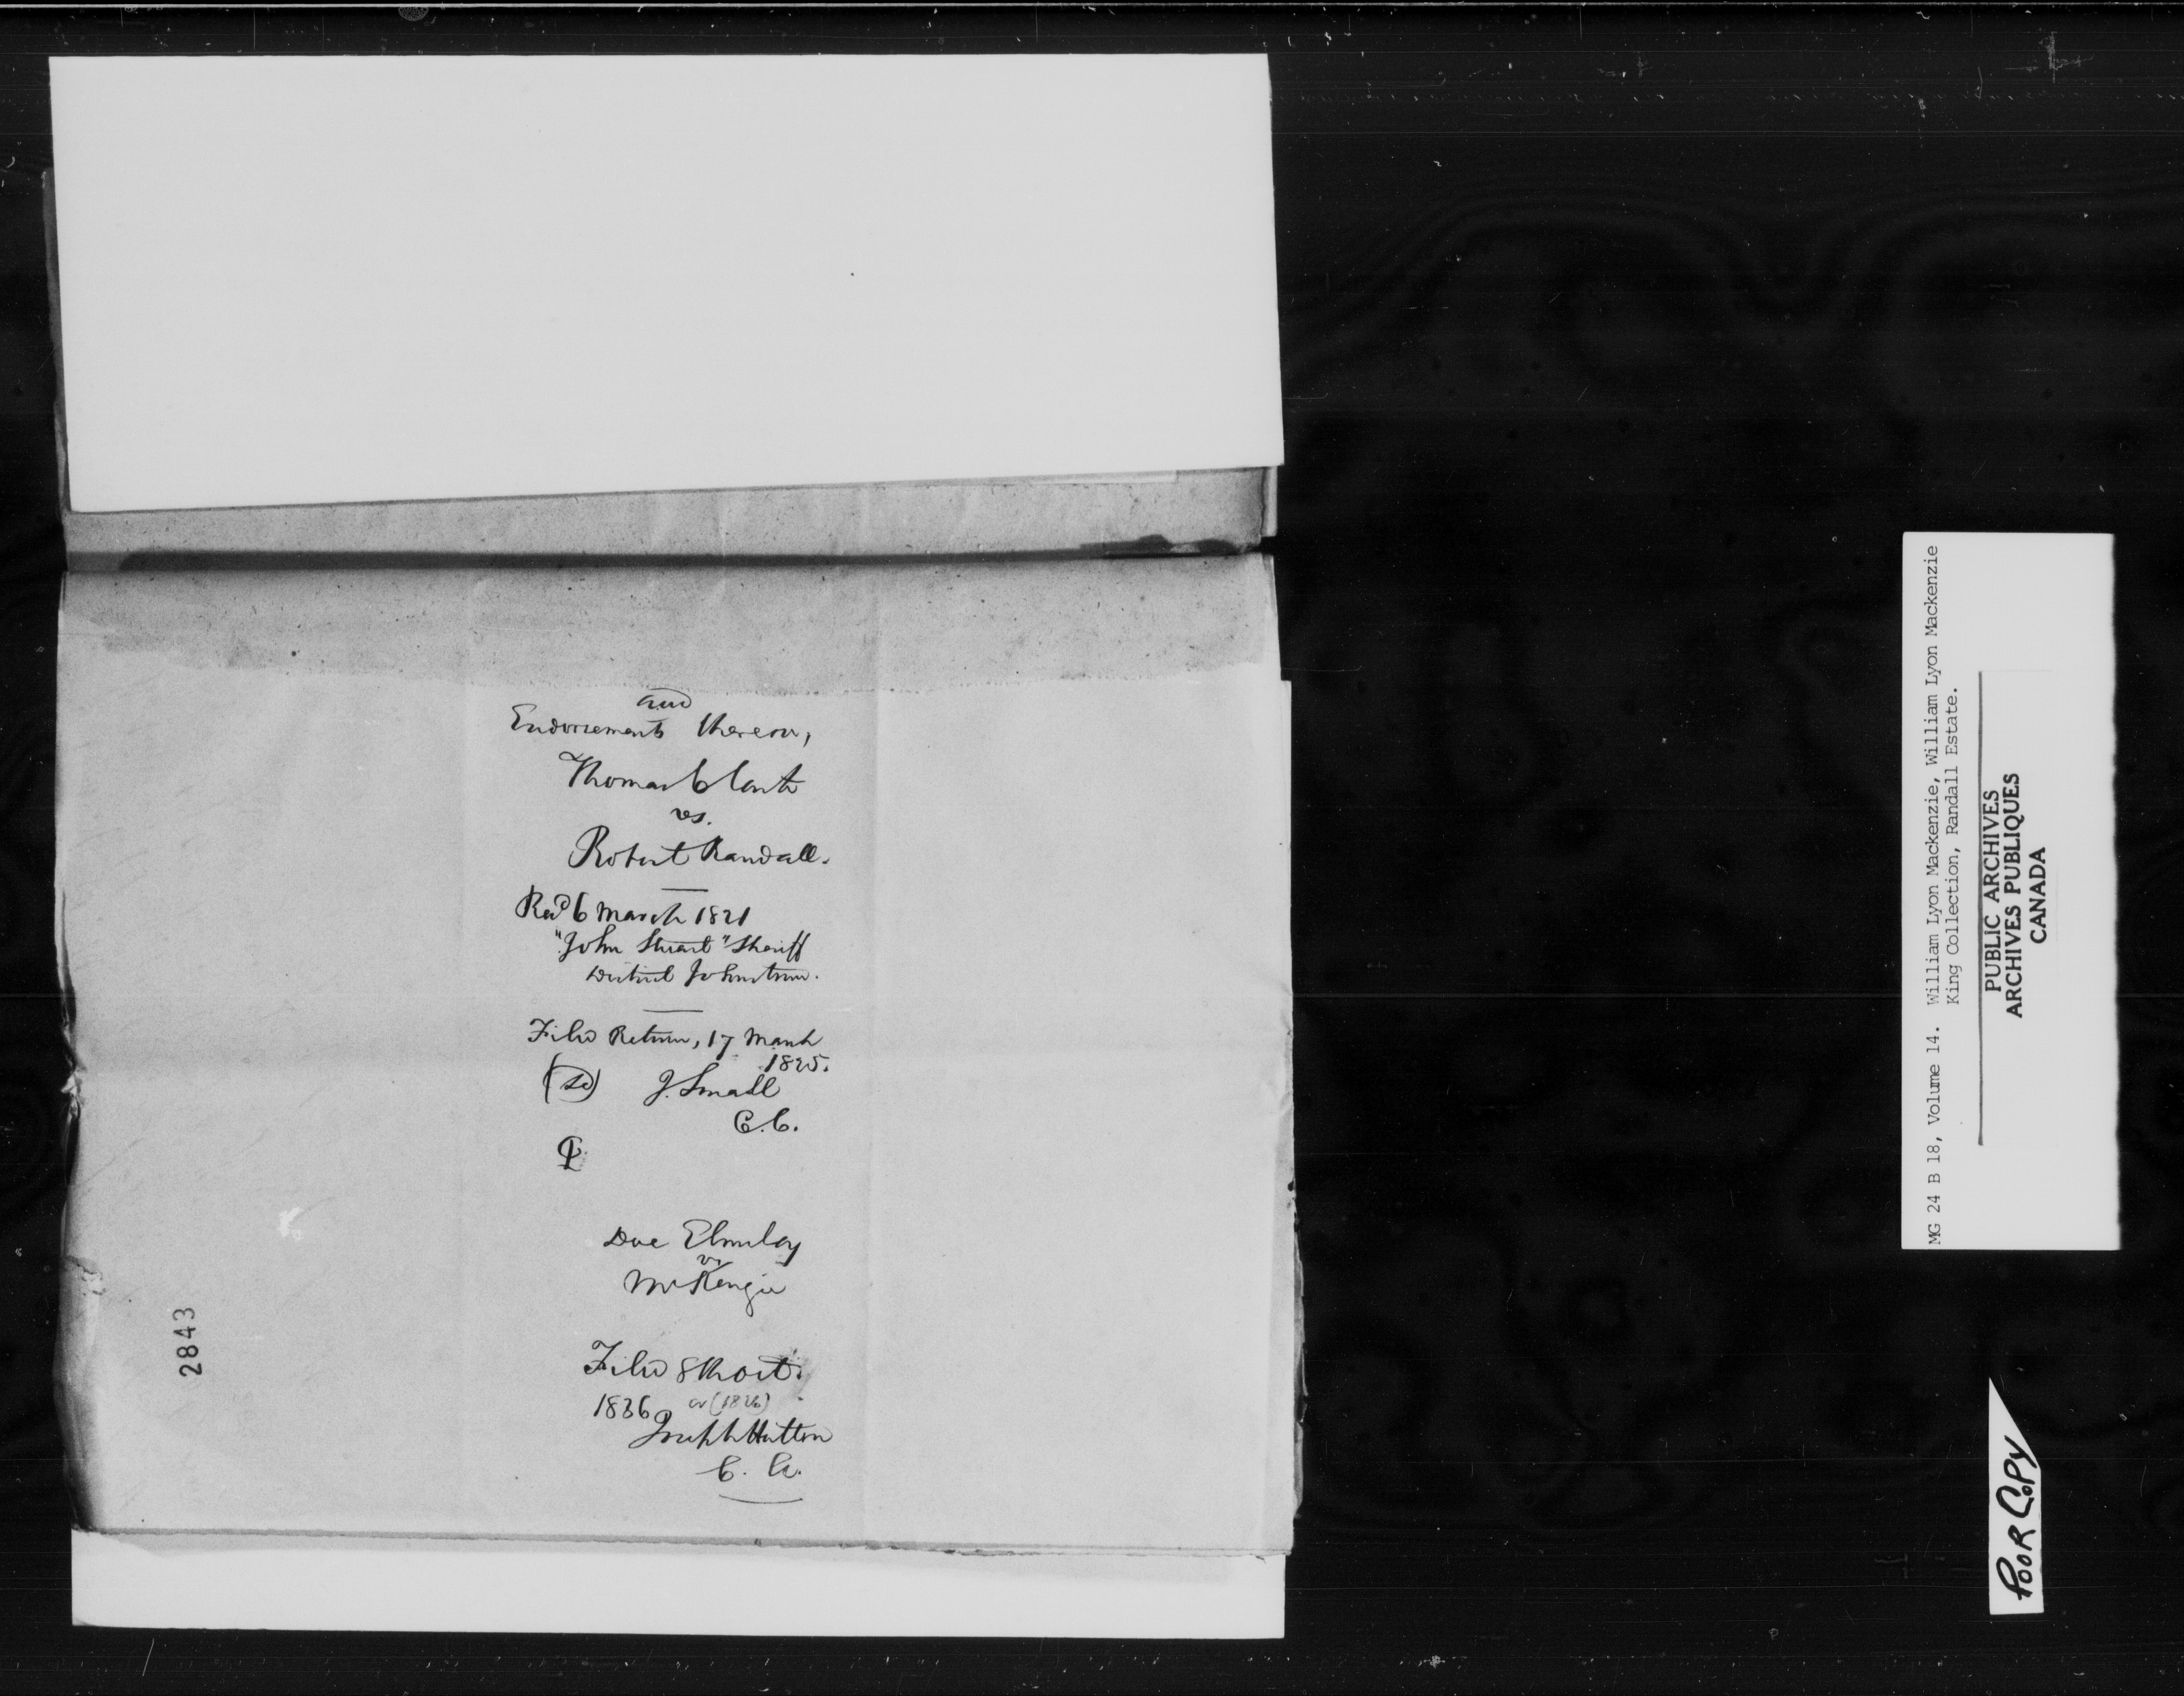 and
Endorsements thereon,
Thomas Clark
vs.
Robert Randall.
Recd 6 March 1821
"John Stuart" Sheriff
District Johnstown.
Filed Return, 17 March
1825.
(Sd) J. Small
C.C.
Doe Elmsley
vs
McKenzie
Filed 8th Oct.
1836 or (1826)
Joseph Hutton
C. A.
2843
MG 24 B 18, Volume 14. William Lyon Mackenzie, William Lyon Mackenzie
King Collection, Randall Estate.
PUBLIC ARCHIVES
ARCHIVES PUBLIQUES
CANADA
POOR COPY